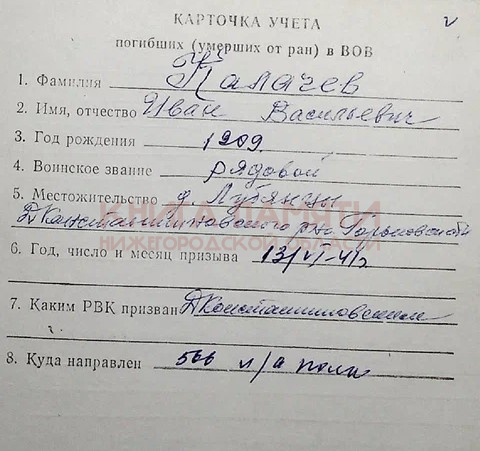 КАРТОЧКА УЧЕТА
погибших (умерших от ран) в ВОВ
1. Фамилия Калачев
2. Имя, отчество Иван Васильевич
3. Год рождения 1909
4. Воинское звание рядовой
5. Местожительство д. Лубянцы
Д Константиновского р-на Горьковской обл
КНИГА ПАМЯТИ
НИЖЕГОРОДСКОЙ ОБЛАСТИ
6. Год, число и месяц призыва 13/VI-41г
7. Каким РВК призван Д Константиновским
г.
8. Куда направлен л/а полк